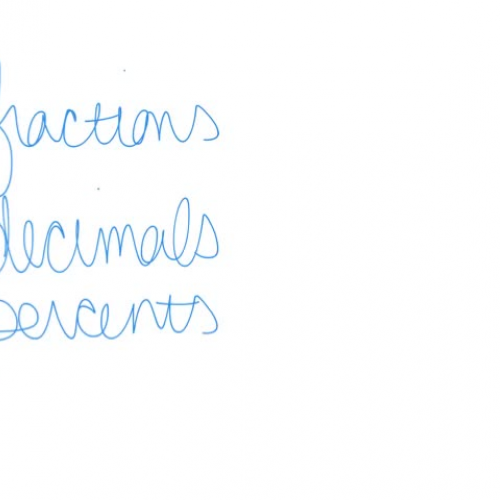 fractions
decimals
percents